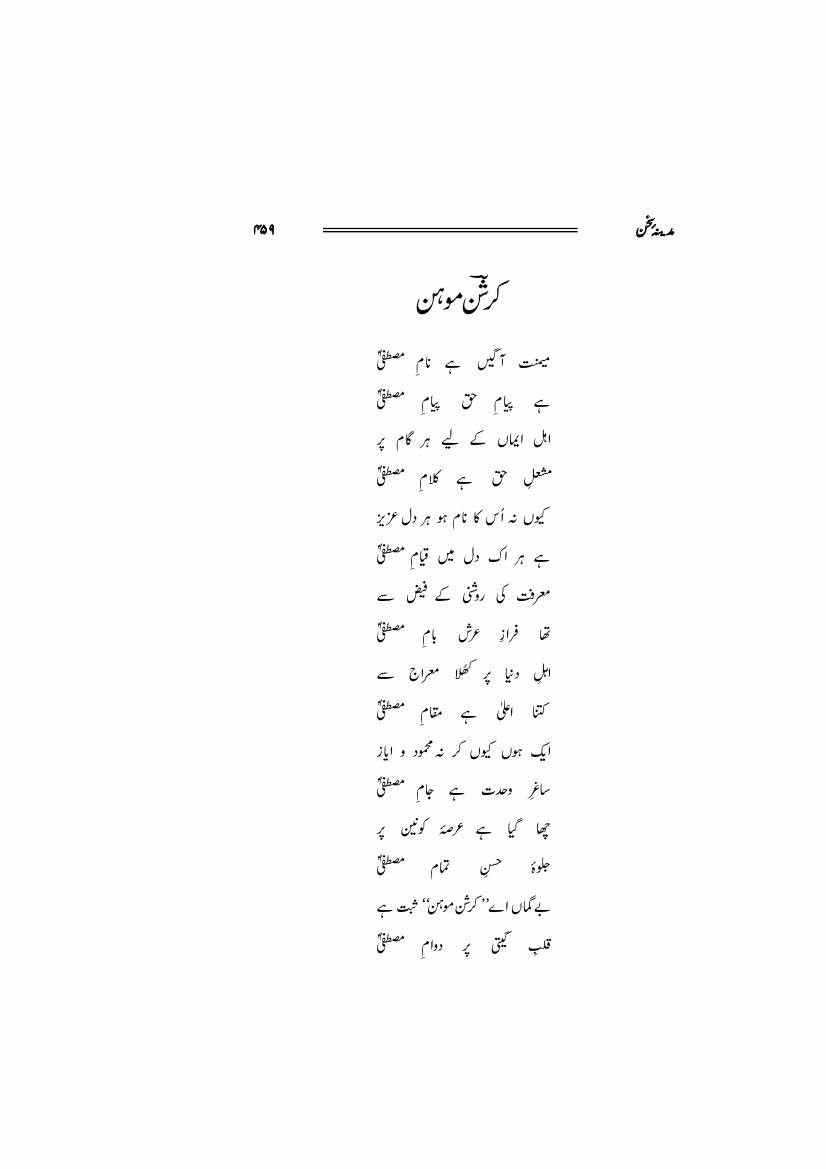 مدینۂ سخن ۴۵۹
کرشن موہن
میمنت آگیں ہے نامِ مصطفیٰؐ
ہے پیامِ حق پیامِ مصطفیٰؐ
اہل ایماں کے لیے ہر گام پر
مشعلِ حق ہے کلامِ مصطفیٰؐ
کیوں نہ اُس کا نام ہو ہر دل عزیز
ہے ہر اک دل میں قیامِ مصطفیٰؐ
معرفت کی روشنی کے فیض سے
تھا فرازِ عرش بامِ مصطفیٰؐ
اہلِ دنیا پر کھُلا معراج سے
کتنا اعلیٰ ہے مقامِ مصطفیٰؐ
ایک ہوں کیوں کر نہ محمود و ایاز
ساغرِ وحدت ہے جامِ مصطفیٰؐ
چھا گیا ہے عرصۂ کونین پر
جلوۂ حسنِ تمام مصطفیٰؐ
بے گماں اے ’’کرشن موہن‘‘ ثبت ہے
قلبِ گیتی پر دوامِ مصطفیٰؐ